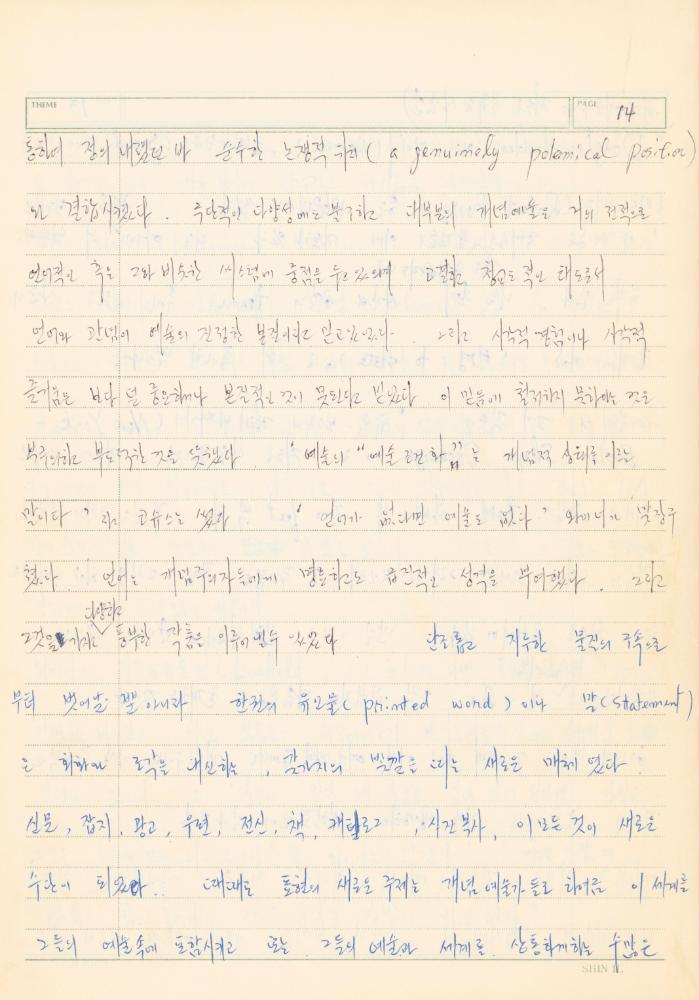 THEME
PAGE 14
통하여 정의 내렸던 바 순수한 논쟁적 위치 ( a genuinely polemical position )
와 결합시켰다 . 수단적인 다양성에도 불구하고 대부분의 개념예술은 거의 전적으로
언어적인 혹은 그와 비슷한 씨스템에 중점을 두고 있으며 고결하고 청교도적인 태도로서
언어와 관념이 예술의 진정한 본질이라고 믿고있었다 . 그리고 시각적 경험이나 시각적
즐거움은 보다 덜 중요하거나 본질적인 것이 못된다고 믿었다 이 믿음에 철저하지 못하다는 것은
부주의하고 부도덕한 것을 뜻했다 ' 예술의 " 예술 조건화 " 는 개념적 상태를 이르는
말이다 ' 라고 코슈스는 썼다 ' 언어가 없다면 예술도 없다 ' 와이너가 맞장구
쳤다 . 언어는 개념주의자들에게 명료하고도 급진적인 성격을 부여했다 . 그리고
다양하고
그것을 가지고 풍부한 작품을 이루어 낼수 있었다 단조롭고 지루한 물질의 구속으로
부터 벗어날 뿐 아니라 한편의 유인물 ( printed word ) 이나 말 ( statement )
은 회화나 조각을 대신하는 , 갖가지의 빛깔을 띠는 새로운 매체 였다 .
신문 , 잡지 , 광고 , 우편 , 전신 , 책 , 캐탈로그 , 사진복사 , 이 모든 것이 새로운
수단이 되었다 . 때때로 표현의 새로운 주제는 개념 예술가들로 하여금 이 세계를
그들의 예술속에 포함시키고 또는 그들의 예술과 세계를 상통하게하는 수많은
SHIN IL.